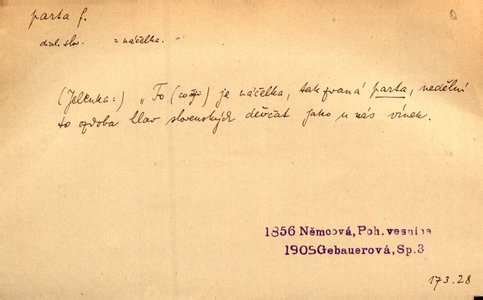 parta f.
dial. slov. = náčelka.
(Jelenka:) "To (což) je náčelka, tak zvaná parta, nedělní
to ozdoba hlav slovenských děvčat jako u nás vínek.
1856 Němcová, Poh. vesnice
1905 Gebauerová, Sp.3
173.28